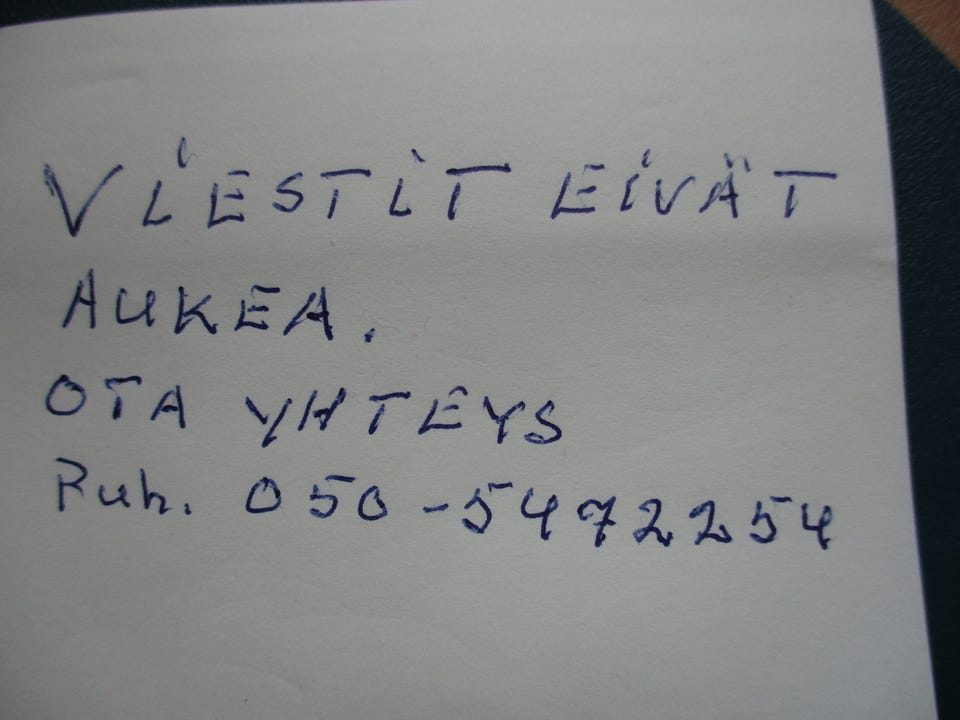 VIESTIT EIVÄT
AUKEA.
OTA YHTEYS
Puh. 050-5472254